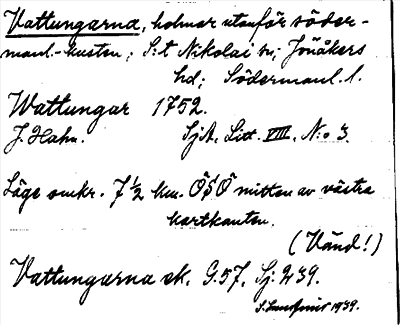 Vattungarna, holmar utanför söder-
manl.-kusten; S:t Nikolai sn; Jönåkers
hd; Södermanl. l.
Wattungar 1752.
J. Hahn. SjA. Litt. VIII. N:o 3.
Läge omkr. 7 1/2 km. ÖSÖ mitten av västra
kartkanten.
(Vänd!)
Vattungarna sk. G. 57, Sj: 239.
1939.